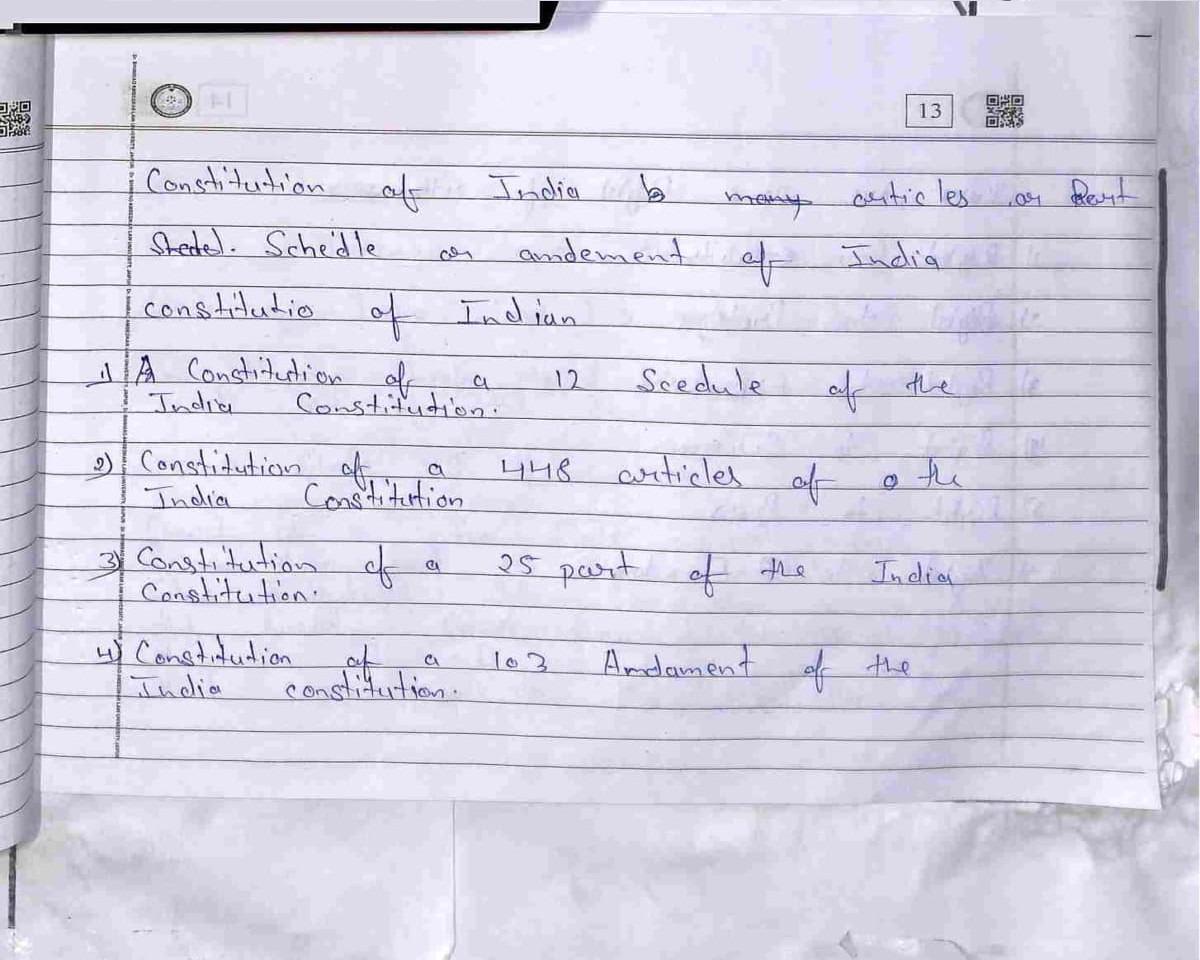 13
Constitution of India many articles or Part
Schedle or amdement of India
constitutio of Indian
1) A Constitution of a 12 Scedule of the
India Constitution.
2) Constitution of a 448 articles of the
India Constitution
3) Constitution of a 25 part of the India
Constitution.
4) Constitution of a 103 Amdament of the
India constitution.